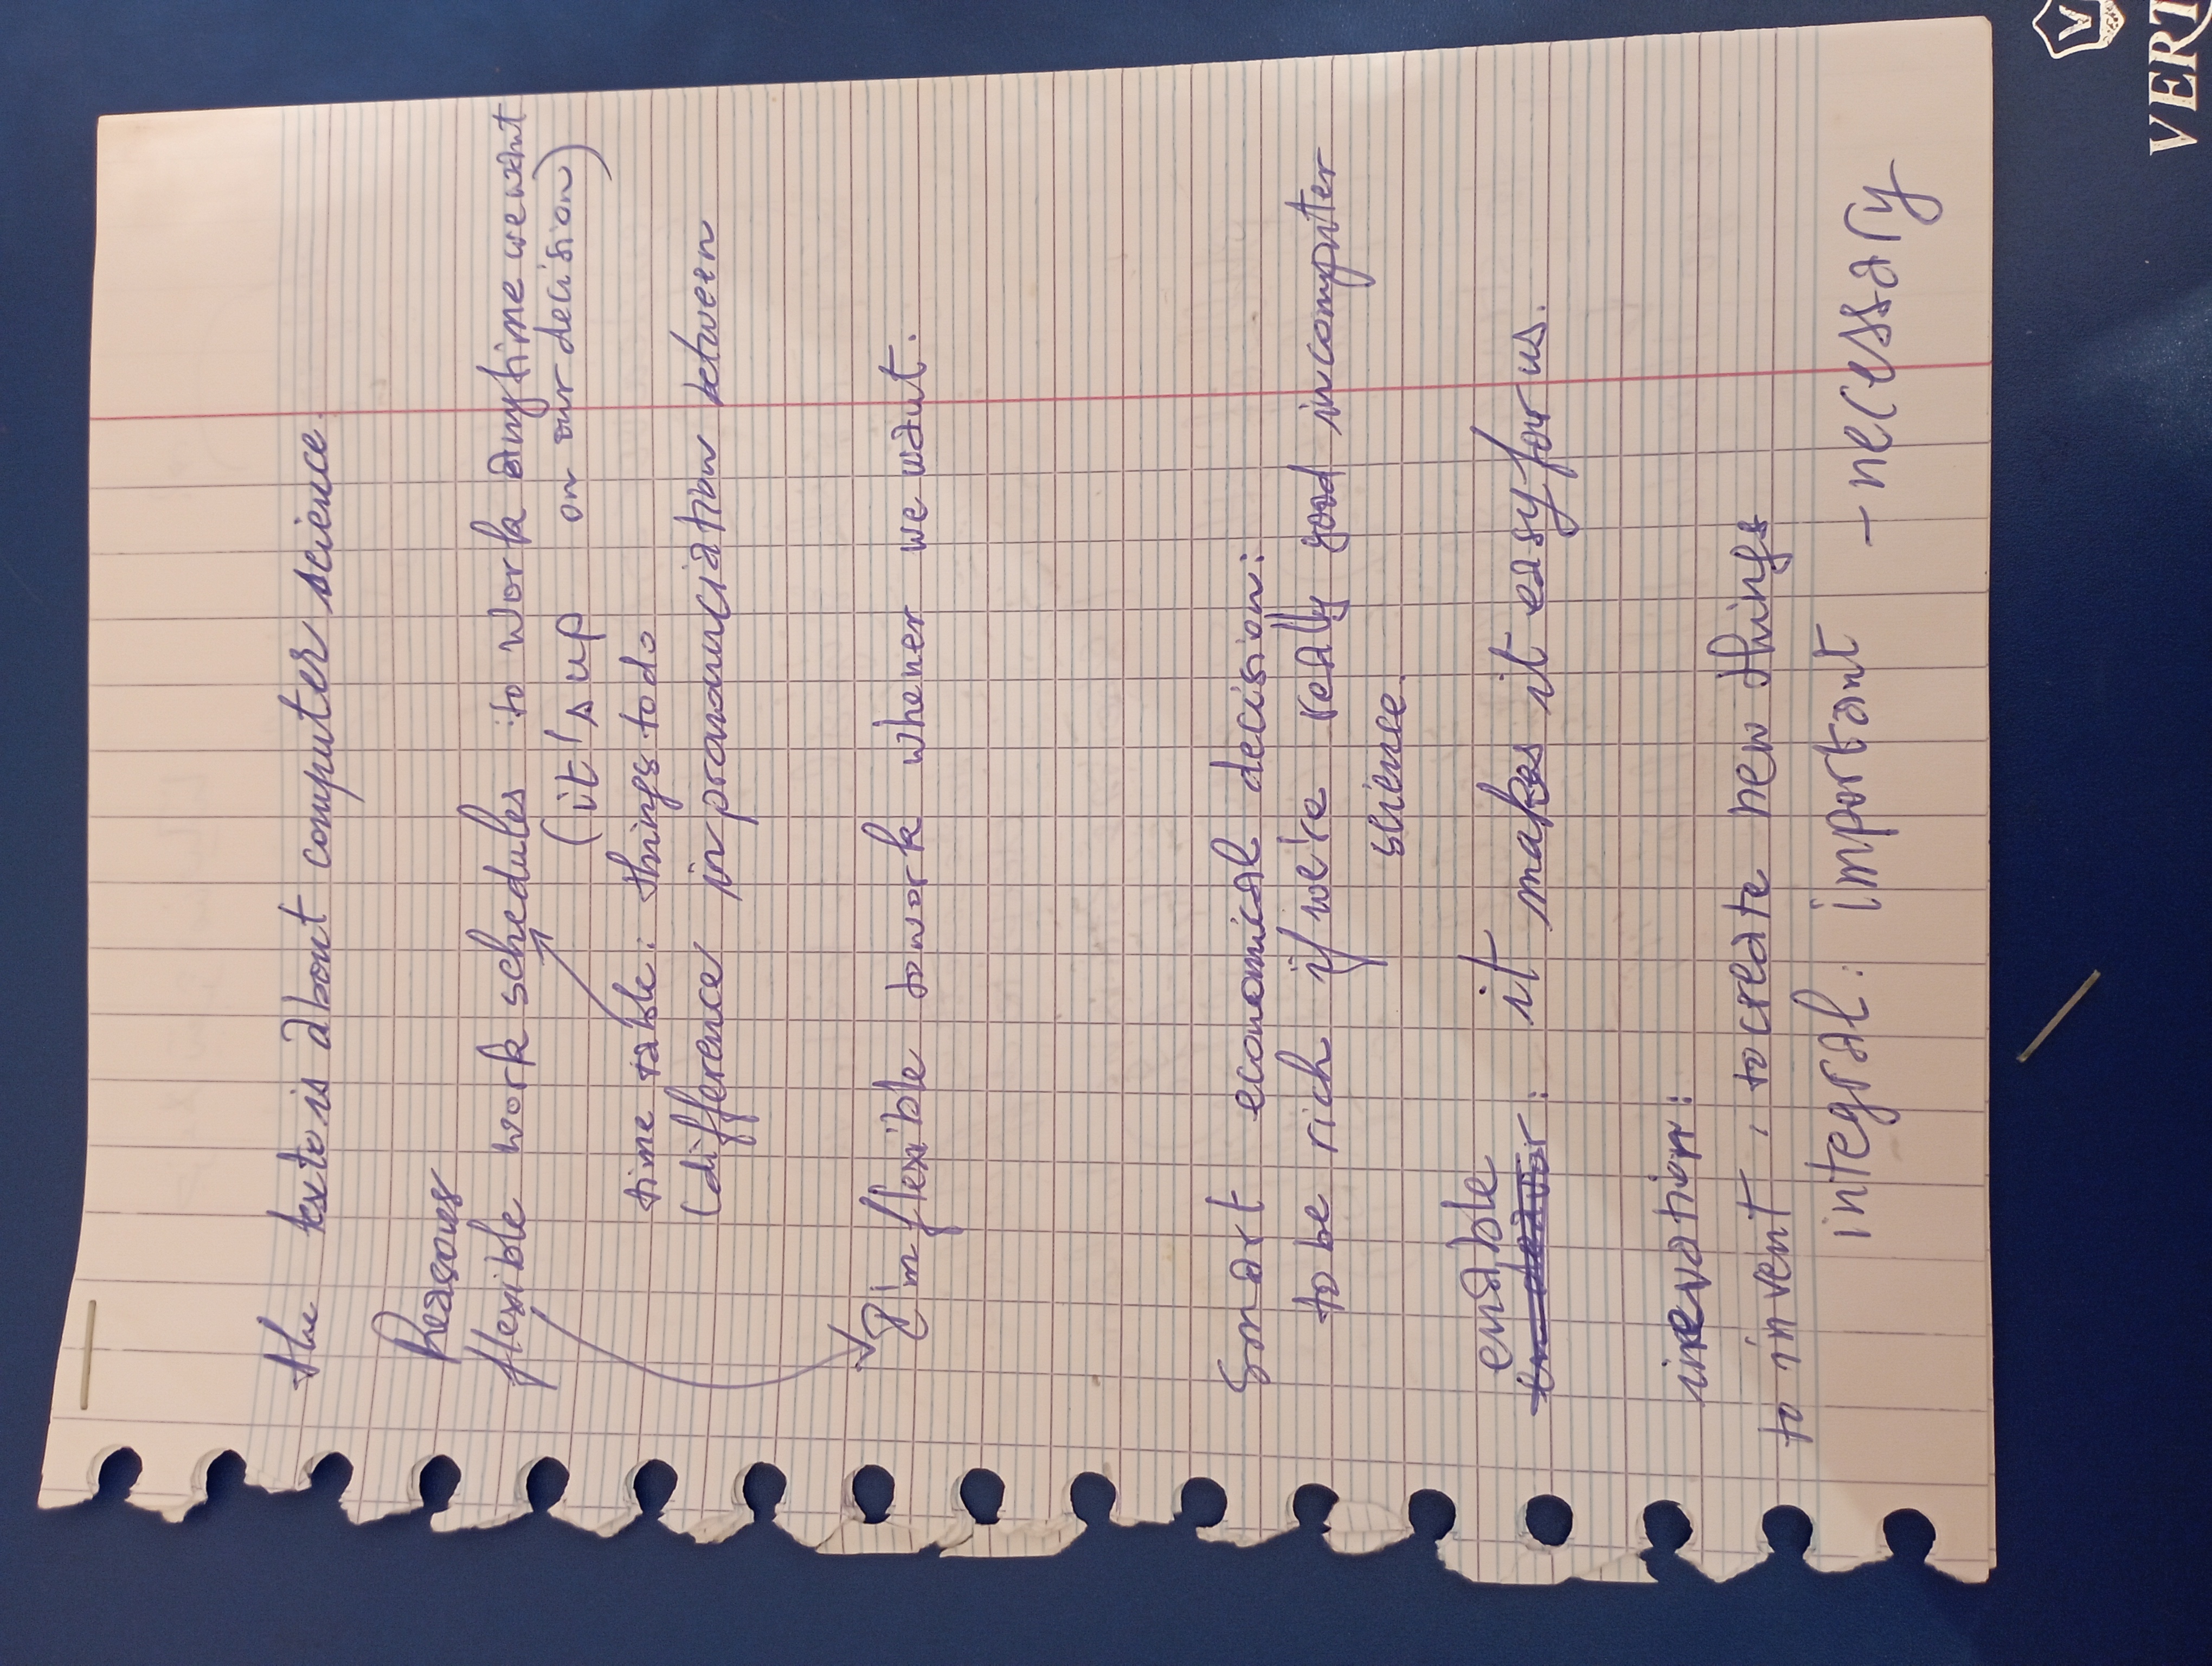 the texte is about computer science.
Reasons
flexible work schedules to work anytime we want
(it's up on our decision)
time table: things to do
(difference in pronunciation between
I'm flexible to work whener we want.
Smart economical decision:
to be rich if we're really good in computer
science.
enable
: it makes it easy for us.
inevation:
to invent, to create new things
integral: important - necessary
VERT
V